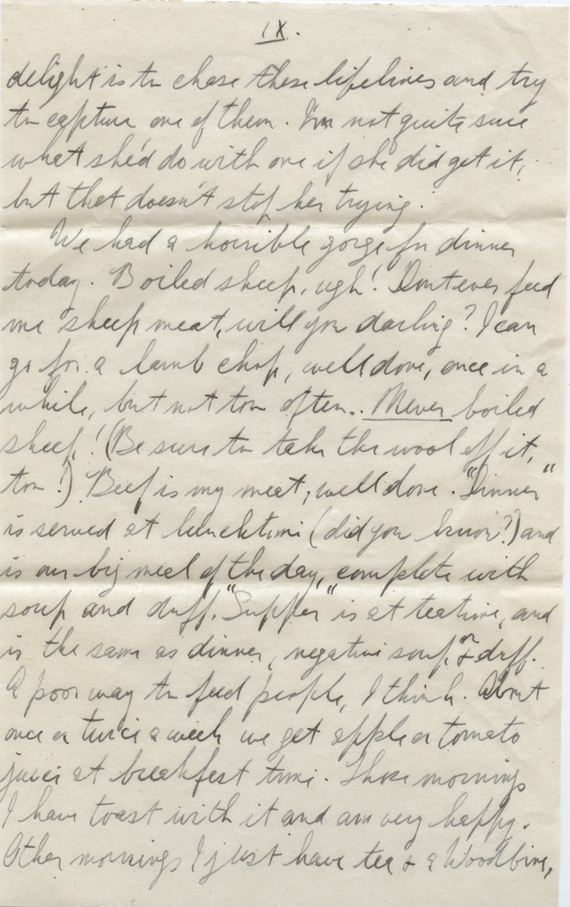 IX.
delight is to chase these lifelines and try
to capture one of them. I'm not quite sure
what she'd do with one if she did get it,
but that doesn't stop her trying.
We had a horrible gorge for dinner
today. Boiled sheep, ugh! Don't ever feed
me sheep meat, will you darling? I can
go for a lamb chop, well done, once in a
while, but not too often.. Never boiled
sheep! (Be sure to take the wool off it,
too!) Beef is my meat, well done. "Dinner"
is served at lunchtime (did you know?) and
is our big meal of the day, complete with
soup and duff. "Supper" is at teatime, and
is the same as dinner, negative soup & duff.
A poor way to feed people, I think. About
once or twice a week we get apple or tomato
juice at breakfast time. Those mornings
I have toast with it and am very happy.
Other mornings I just have tea & a Woodbine,